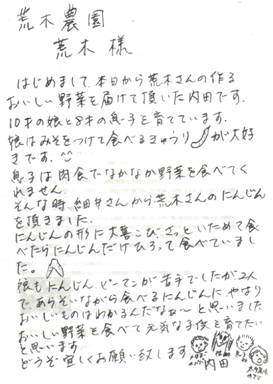 荒木農園
荒木様
はじめまして、本日から荒木さんの作る
おいしい野菜を届けて頂いた内田です。
10才の娘と8才の息子を育てています。
娘はみそをつけて食べるきゅうりが大好
きです。
息子は肉食でなかなか野菜を食べてく
れません
そんな時、細井さんから荒木さんのにんじん
を頂きました。
にんじんの形に大喜こび、さっといためて食
べたらにんじんだけひろって食べていまし
た。
娘もにんじん、ピーマンが苦手でしたが2人
であらそいながら食べるにんじんに、やはり
おいしいものはわかるんだなぁ〜と思いました
おいしい野菜を食べて元気な子供を育てたい
と思います
どうぞ宜しくお願い致します
内田